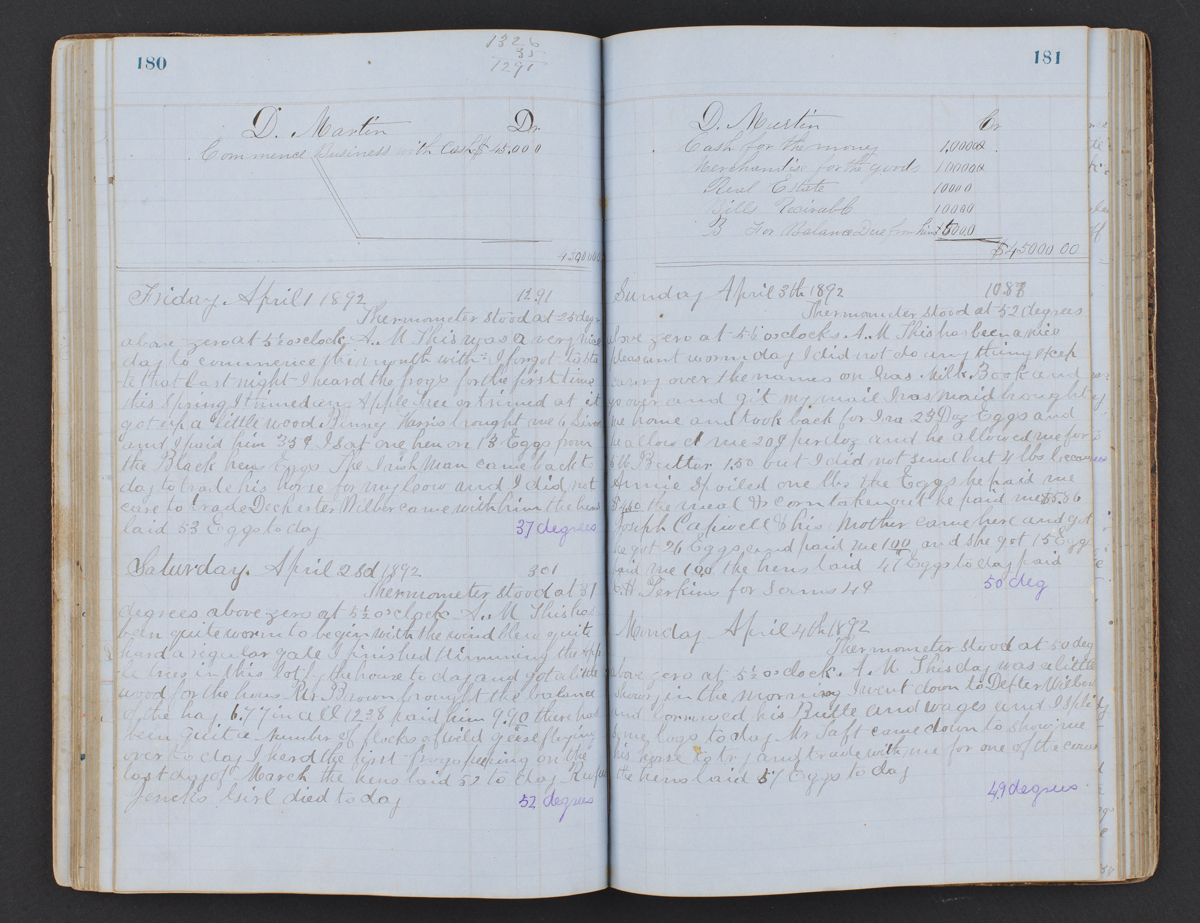 180
1326
35
1291
D. Martin Dr
Commenced Business with Cash $ 45.000
45000.00
Friday. April 1 1892 1291
Thermometer stood at 25 degr
above zero at 5½ oclock A.. M This was a very nice
day to commence the month with - I forgot to sta
te that last night I heard the frogs for the first time
this Spring I trimed an Apple tree or trimed at it
got up a little wood Henry Harris brought me
and I paid him 35¢ I Sat one hen on 13 Eggs from
the Black hens Eggs The Irish Man came back to
day to trade his horse for my cow and I did not
care to trade Dechester Wilbur came with him the hens
laid 53 Eggs to day 37 degrees
Saturday. April 2sd 1892 301
Thermometer stood at 31
degrees above zero at 5½ o'clock A.. M This has
been quite worm to begin with the wind blew quite
hard a regular gale I finished trimming the App
le trees in this lot by the house to day and got a little
wood for the house Brown brought the balance
of the hay 6.77 in all 12.38 paid him 9.90 there has
been quite a number of flocks of wild geese flying
over to day I heard the first frogs peeking on the
last day of March the hens laid 52 to day
Jencks Girl died to day 52 degrees
181
D. Martin Cr
Cash for the money 10000
Merchandise for the goods 10000
Real Estate 10000
Bills Recivable 10000
B For Balance Due from him 5000
$45000.00
Sunday April 3th 1892 1087
Thermometer stood at 52 degrees
above zero at 5½ oclocks A.. M This has been a nice
pleasant worm day I did not do any thing except
carry over the names on Iras Milk Book and
go over and git my mail Iras maid brought
me home and took back for Ira 23 Doz Eggs and
he allowed me 20¢ per doz and he allowed me for
5 lb Butter 1.50 but I did not send but 4 lbs because
Annie Spoiled one lbs the Eggs he paid me
$4.60 the meal & corn taken out he paid me $5.36
Joseph Capwell & his Mother came here and got
he got 26 Eggs and paid me 1.00 and she got 15 Eggs
paid me 1.00 the hens laid 47 Eggs to day paid
E H Perkins for 49 50 deg
Monday April 4th 1892
Thermometer stood at 50 deg
above zero at 5½ oclock. A. M This day was a little
showry in the morning I went down to Wilbur
and borrowed his and wages and I split
some logs to day Mr Taft came down to show me
his horse to try and trade with me for one of the cows
the hens laid 57 Eggs to day
49 degrees